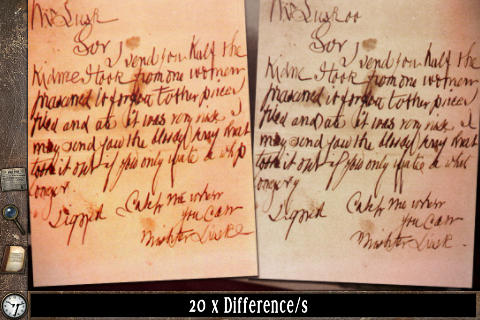 Mr Lusk
Sor I send you half the
Kidne I took from one women
prasarved it for you tother piece
fried and ate it was very nise I
may send you the bloody knif that
took it out if you only wate a whil
longer
signed Catch me when
you can
Mishter Lusk
Mr Lusk oo
Sor
I send you half the
Kidne I took from one women
prasarved it for you tother piece
fried and ate it was very nise I
may send you the bloody knif that
took it out if you only wate a whil
longer y
signed Catch me when
you can
Mishter Lusk
20 x Difference/s